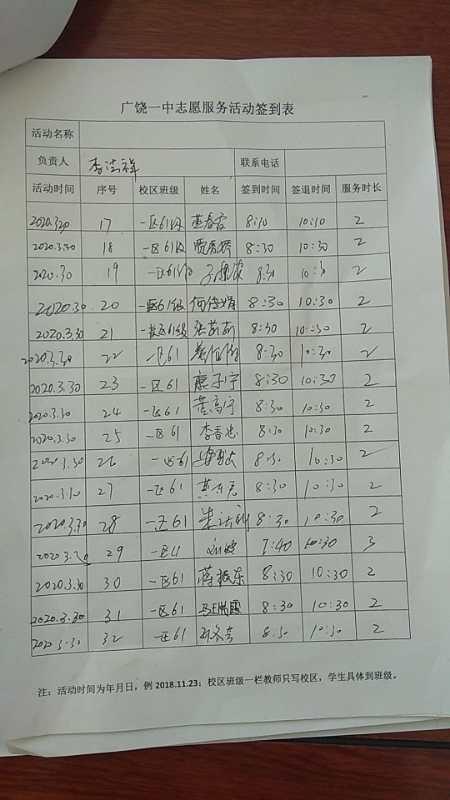 广饶一中志愿服务活动签到表
活动名称
负责人 李法祥 联系电话
活动时间 序号 校区班级 姓名 签到时间 签退时间 服务时长
2020.3.30 17 一区61级 8:30 10:30 2
2020.3.30 18 一区61级 8:30 10:30 2
2020.30 19 一区61级 8:30 10:30 2
2020.3.30 20 一区61级 8:30 10:30 2
2020.3.30 21 一区61级 8:30 10:30 2
2020.3.30 22 一区61 8:30 10:30 2
2020.3.30 23 一区61 8:30 10:30 2
2020.3.30 24 一区61 8:30 10:30 2
2020.3.30 25 一区61 李春忠 8:30 10:30 2
2020.3.30 26 一区61 8:30 10:30 2
2020.3.30 27 一区61 8:30 10:30 2
2020.3.30 28 一区61 8:30 10:30 2
2020.3.30 29 一区61 7:40 10:30 3
2020.3.30 30 一区61 蒋振东 8:30 10:30 2
2020.3.30 31 一区61 8:30 10:30 2
2020.3.30 32 一区61 8:30 10:30 2
注：活动时间为年月日，例 2018.11.23；校区班级一栏教师只写校区，学生具体到班级。